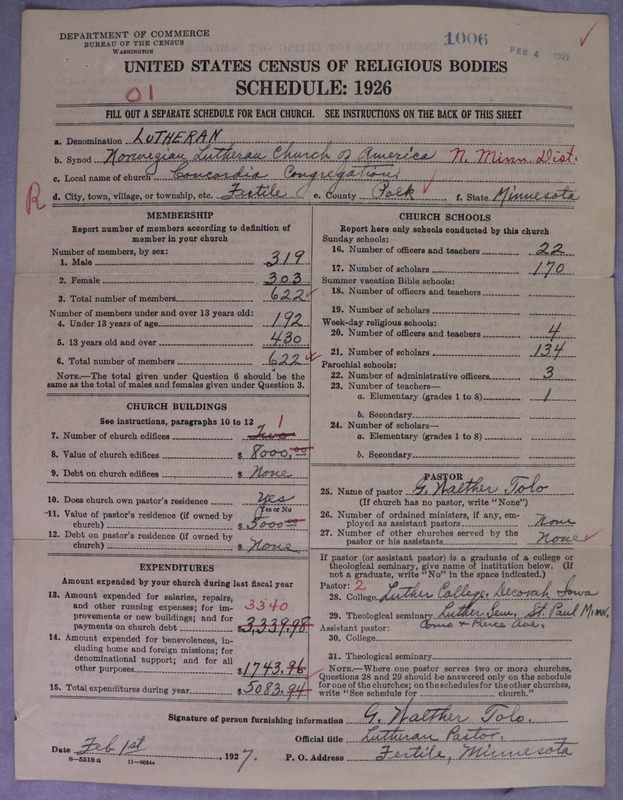 DEPARTMENT OF COMMERCE
BUREAU OF THE CENSUS
WASHINGTON
1006
FEB 4 1927
UNITED STATES CENSUS OF RELIGIOUS BODIES
SCHEDULE: 1926
01
FILL OUT A SEPARATE SCHEDULE FOR EACH CHURCH. SEE INSTRUCTIONS ON THE BACK OF THIS SHEET
a. Denomination LUTHERAN
b. Synod Norwegian Lutheran Church of America N. Minn. Dist.
c. Local name of church Concordia Congregation
R
d. City, town, village, or township, etc. Fertile e. County Polk f. State Minnesota
MEMBERSHIP
Report number of members according to definition of
member in your church
Number of members, by sex:
1. Male 319
2. Female 303
3. Total number of members 622
Number of members under and over 13 years old:
4. Under 13 years of age 192
5. 13 years old and over 430
6. Total number of members 622
NOTE.—The total given under Question 6 should be the
same as the total of males and females given under Question 3.
CHURCH BUILDINGS
See instructions, paragraphs 10 to 12
1
7. Number of church edifices Two
8. Value of church edifices $ 8000.00
9. Debt on church edifices $ None
10. Does church own pastor's residence Yes
(Yes or No)
11. Value of pastor's residence (if owned by
church) $ 5000.00
12. Debt on pastor's residence (if owned by
church) $ None
EXPENDITURES
Amount expended by your church during last fiscal year
13. Amount expended for salaries, repairs,
and other running expenses; for im-
provements on new buildings; and for
payments on church debt $ 3,339.98
3340
14. Amount expended for benevolences, in-
cluding home and foreign missions; for
denominational support; and for all
other purposes $ 1743.96
15. Total expenditures during year $ 5083.94
CHURCH SCHOOLS
Report here only schools conducted by this church
Sunday schools:
16. Number of officers and teachers 22
17. Number of scholars 170
Summer vacation Bible schools:
18. Number of officers and teachers
19. Number of scholars
Week-day religious schools:
20. Number of officers and teachers 4
21. Number of scholars 134
Parochial schools:
22. Number of administrative officers 3
23. Number of teachers—
a. Elementary (grades 1 to 8) 1
b. Secondary
24. Number of scholars—
a. Elementary (grades 1 to 8)
b. Secondary
PASTOR
25. Name of pastor G. Walther Tolo
(If church has no pastor, write "None")
26. Number of ordained ministers, if any, em-
ployed as assistant pastors None
27. Number of other churches served by the
pastor or his assistants None
If pastor (or assistant pastor) is a graduate of a college or
theological seminary, give name of institution below. (If
not a graduate, write "No" in the space indicated.)
Pastor: 2
28. College Luther College. Decorah Iowa
29. Theological seminary Luther Sem. St. Paul Minn.
Como & Pierce Ave.
Assistant pastor:
30. College
31. Theological seminary
NOTE.—Where one pastor serves two or more churches,
Questions 28 and 29 should be answered only on the schedule
for one of the churches; on the schedules for the other churches,
write "See schedule for church."
Signature of person furnishing information G. Walther Tolo.
Official title Lutheran Pastor.
Date Feb 1st, 1927. P. O. Address Fertile, Minnesota
8—5518 a 11—9054